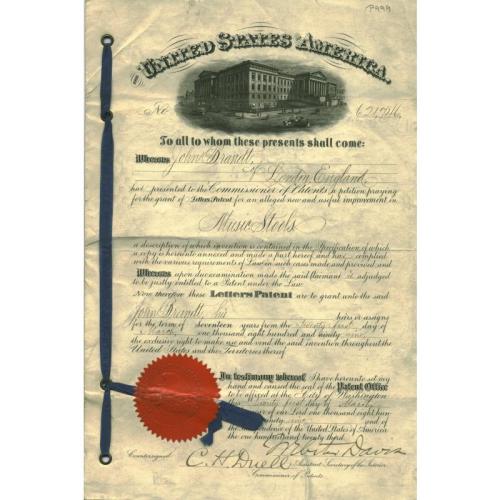 P999
The United States of America.
No 621,726,
To all to whom these presents shall come:
Whereas John Brandt,
of London England,
has presented to the Commissioner of Patents a petition praying
for the grant of Letters Patent for an alleged new and useful improvement in
Music Stools
a description of which invention is contained in the Specification of which
a copy is hereunto annexed and made a part hereof and has complied
with the various requirements of Law in such cases made and provided and
Whereas upon due examination made the said Claimant is adjudged
to be justly entitled to a Patent under the Law.
Now therefore these Letters Patent are to grant unto the said
John Brandt, his heirs or assigns
for the term of seventeen years from the twenty first day of
March one thousand eight hundred and ninety nine
the exclusive right to make use and vend the said invention throughout the
United States and the Territories thereof.
In testimony whereof I have hereunto set my
hand and caused the seal of the Patent Office
to be affixed at the City of Washington
this twenty first day of March
of our Lord one thousand eight hun-
nine and of the
Independence of the United States of America
the one hundred and twenty third.
Webster Davis
Countersigned
C. H. Duell
Assistant Secretary of the Interior.
Commissioner of Patents.